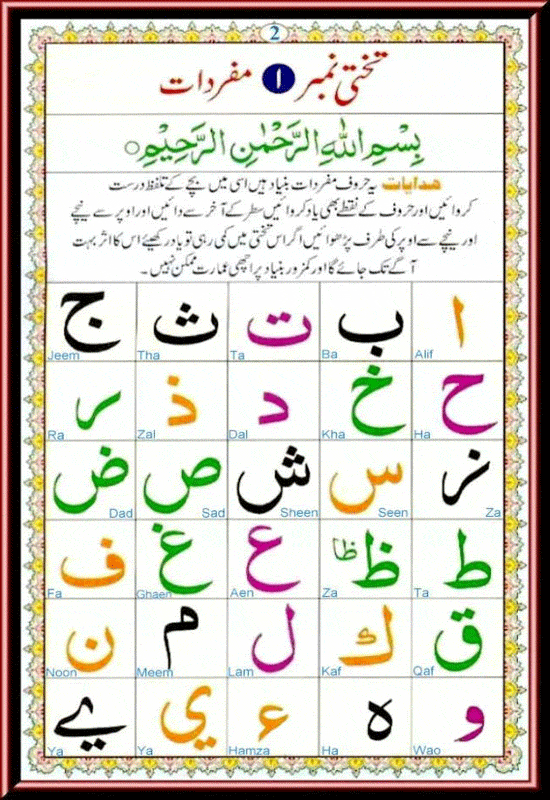 2
تختی نمبر ۱ مفردات
بِسْمِ اللّٰهِ الرَّحْمٰنِ الرَّحِيْمِ
هدايات یہ حروف مفردات بنیاد ہیں اسی میں بچے کے تلفظ درست
کروائیں اور حروف کے نقطے بھی یاد کروائیں سطر کے آخر سے دائیں اور اوپر سے نیچے
اور نیچے سے اوپر کی طرف پڑھوائیں اگر اس تختی میں کمی رہی تو یاد رکھیئے اس کا اثر بہت
آگے تک جائے گا اور کمزور بنیاد پر اچھی عمارت ممکن نہیں۔
ا ب ت ث ج
Alif Ba Ta Tha Jeem
ح خ د ذ ر
Ha Kha Dal Zal Ra
ز س ش ص ض
Za Seen Sheen Sad Dad
ط ظ ظا ع غ ف
Ta Za Aen Ghaen Fa
ق ك ل م ن
Qaf Kaf Lam Meem Noon
و ه ء ي ے
Wao Ha Hamza Ya Ya